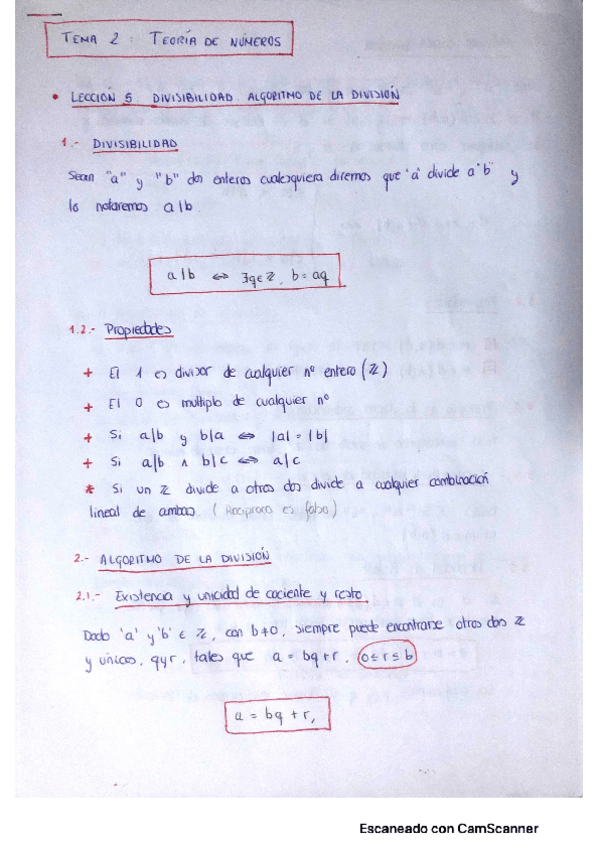 TEMA 2 : TEORÍA DE NÚMEROS
• LECCIÓN 5 DIVISIBILIDAD. ALGORITMO DE LA DIVISIÓN
1.- DIVISIBILIDAD
Sean "a" y "b" dos enteros cualesquiera diremos que 'a' divide a 'b' y
lo notaremos a|b
a|b ⇔ ∃q∈ℤ, b = aq
1.2.- Propiedades
+ El 1 es divisor de cualquier nº entero (ℤ)
+ El 0 es multiplo de cualquier nº
+ Si a|b y b|a ⇔ |a| = |b|
+ Si a|b ∧ b|c ⇔ a|c
* Si un ℤ divide a otros dos divide a cualquier combinación
lineal de ambas (Recíproco es falso)
2.- ALGORITMO DE LA DIVISIÓN
2.1.- Existencia y unicidad de cociente y resto
Dado 'a' y 'b' ∈ ℤ, con b≠0, siempre puede encontrarse otros dos ℤ
y únicos, q y r, tales que a = bq + r, 0 ≤ r ≤ b
a = bq + r,
Escaneado con CamScanner